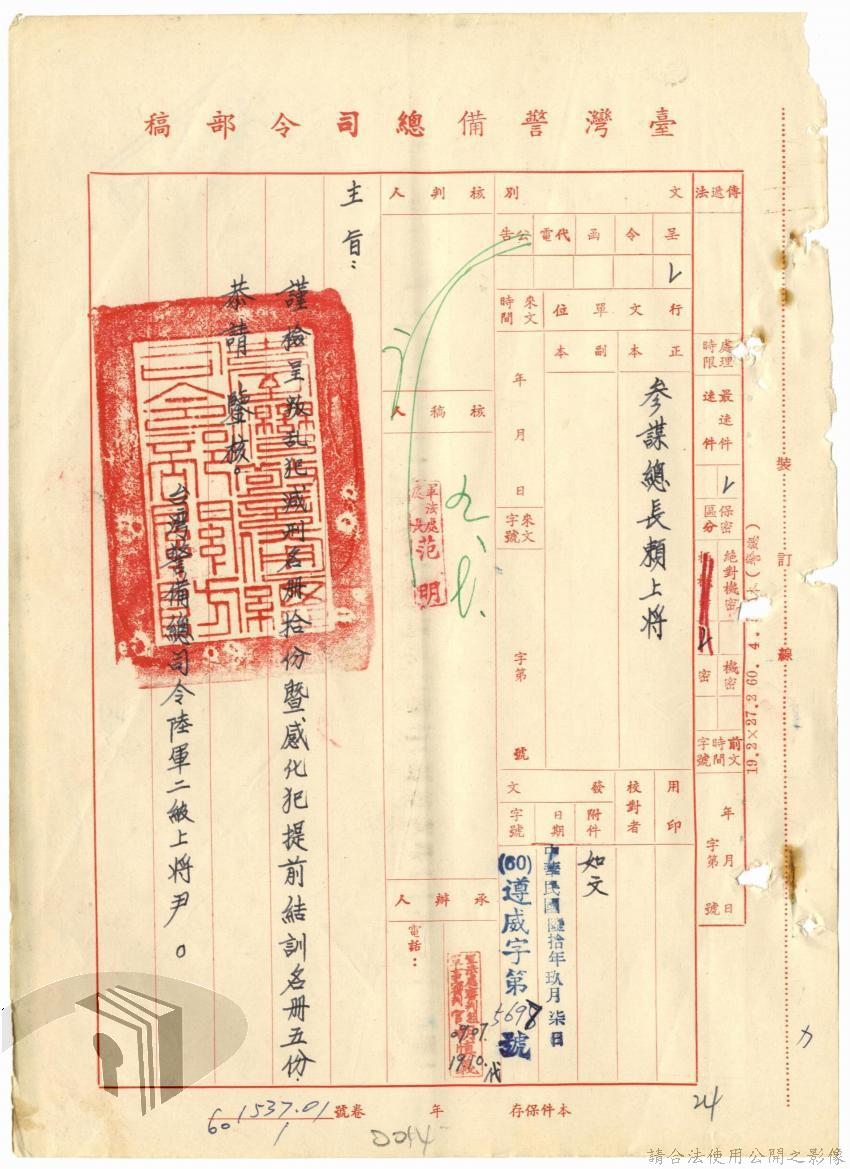 臺灣警備總司令部稿
傳遞法
處理時限
最速件
速件
保密區分
絕對機密
機密
密
前文時間字號
年
月
日
字第
號
文別
呈
令
函
代電
公告
行文單位
正本
副本
來文時間
年
月
日
來文字號
字第
號
參謀總長賴上將
用印
校對者
發文
附件
日期
字號
如文
中華民國陸拾年玖月柒日
(60)遵威字第5698號
核判人
核稿人
軍法處處長范明
九、七、
承辦人
電話:
07.07.
1910.
代
主旨:
謹檢呈叛乱犯減刑名冊拾份暨感化犯提前結訓名冊五份.
恭請 鑒核。
台灣警備總司令陸軍二級上將尹○
裝訂線
19.2×27.2 60.4.
本件保存
年
卷號
60 1537.01/1
0044
24
請合法使用公開之影像